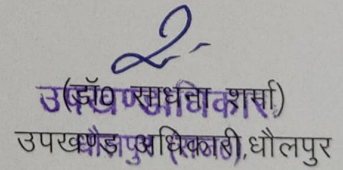 (डॉ0 साधना शर्मा)
उपखण्ड अधिकारी
उपखण्ड अधिकारी,धौलपुर